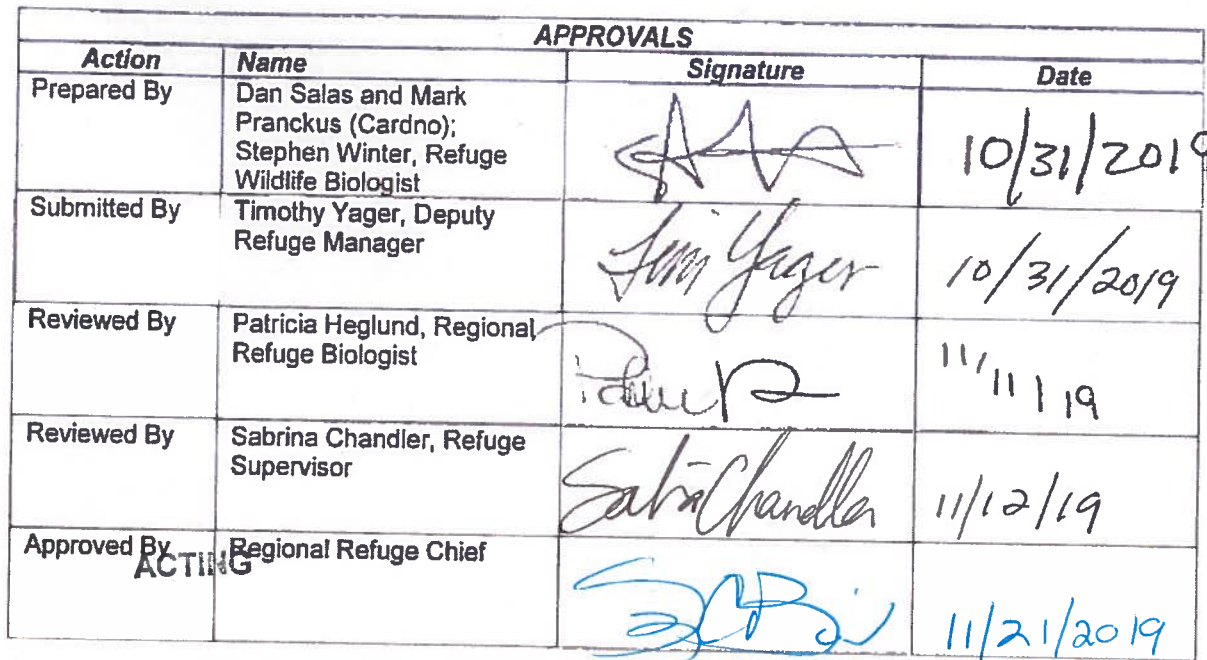 APPROVALS
Action Name Signature Date
Prepared By Dan Salas and Mark
Pranckus (Cardno);
Stephen Winter, Refuge
Wildlife Biologist
10/31/2019
Submitted By Timothy Yager, Deputy
Refuge Manager
Tim Yager 10/31/2019
Reviewed By Patricia Heglund, Regional
Refuge Biologist
11/11/19
Reviewed By Sabrina Chandler, Refuge
Supervisor
Sabrina Chandler 11/12/19
Approved By Regional Refuge Chief
ACTING
11/21/2019